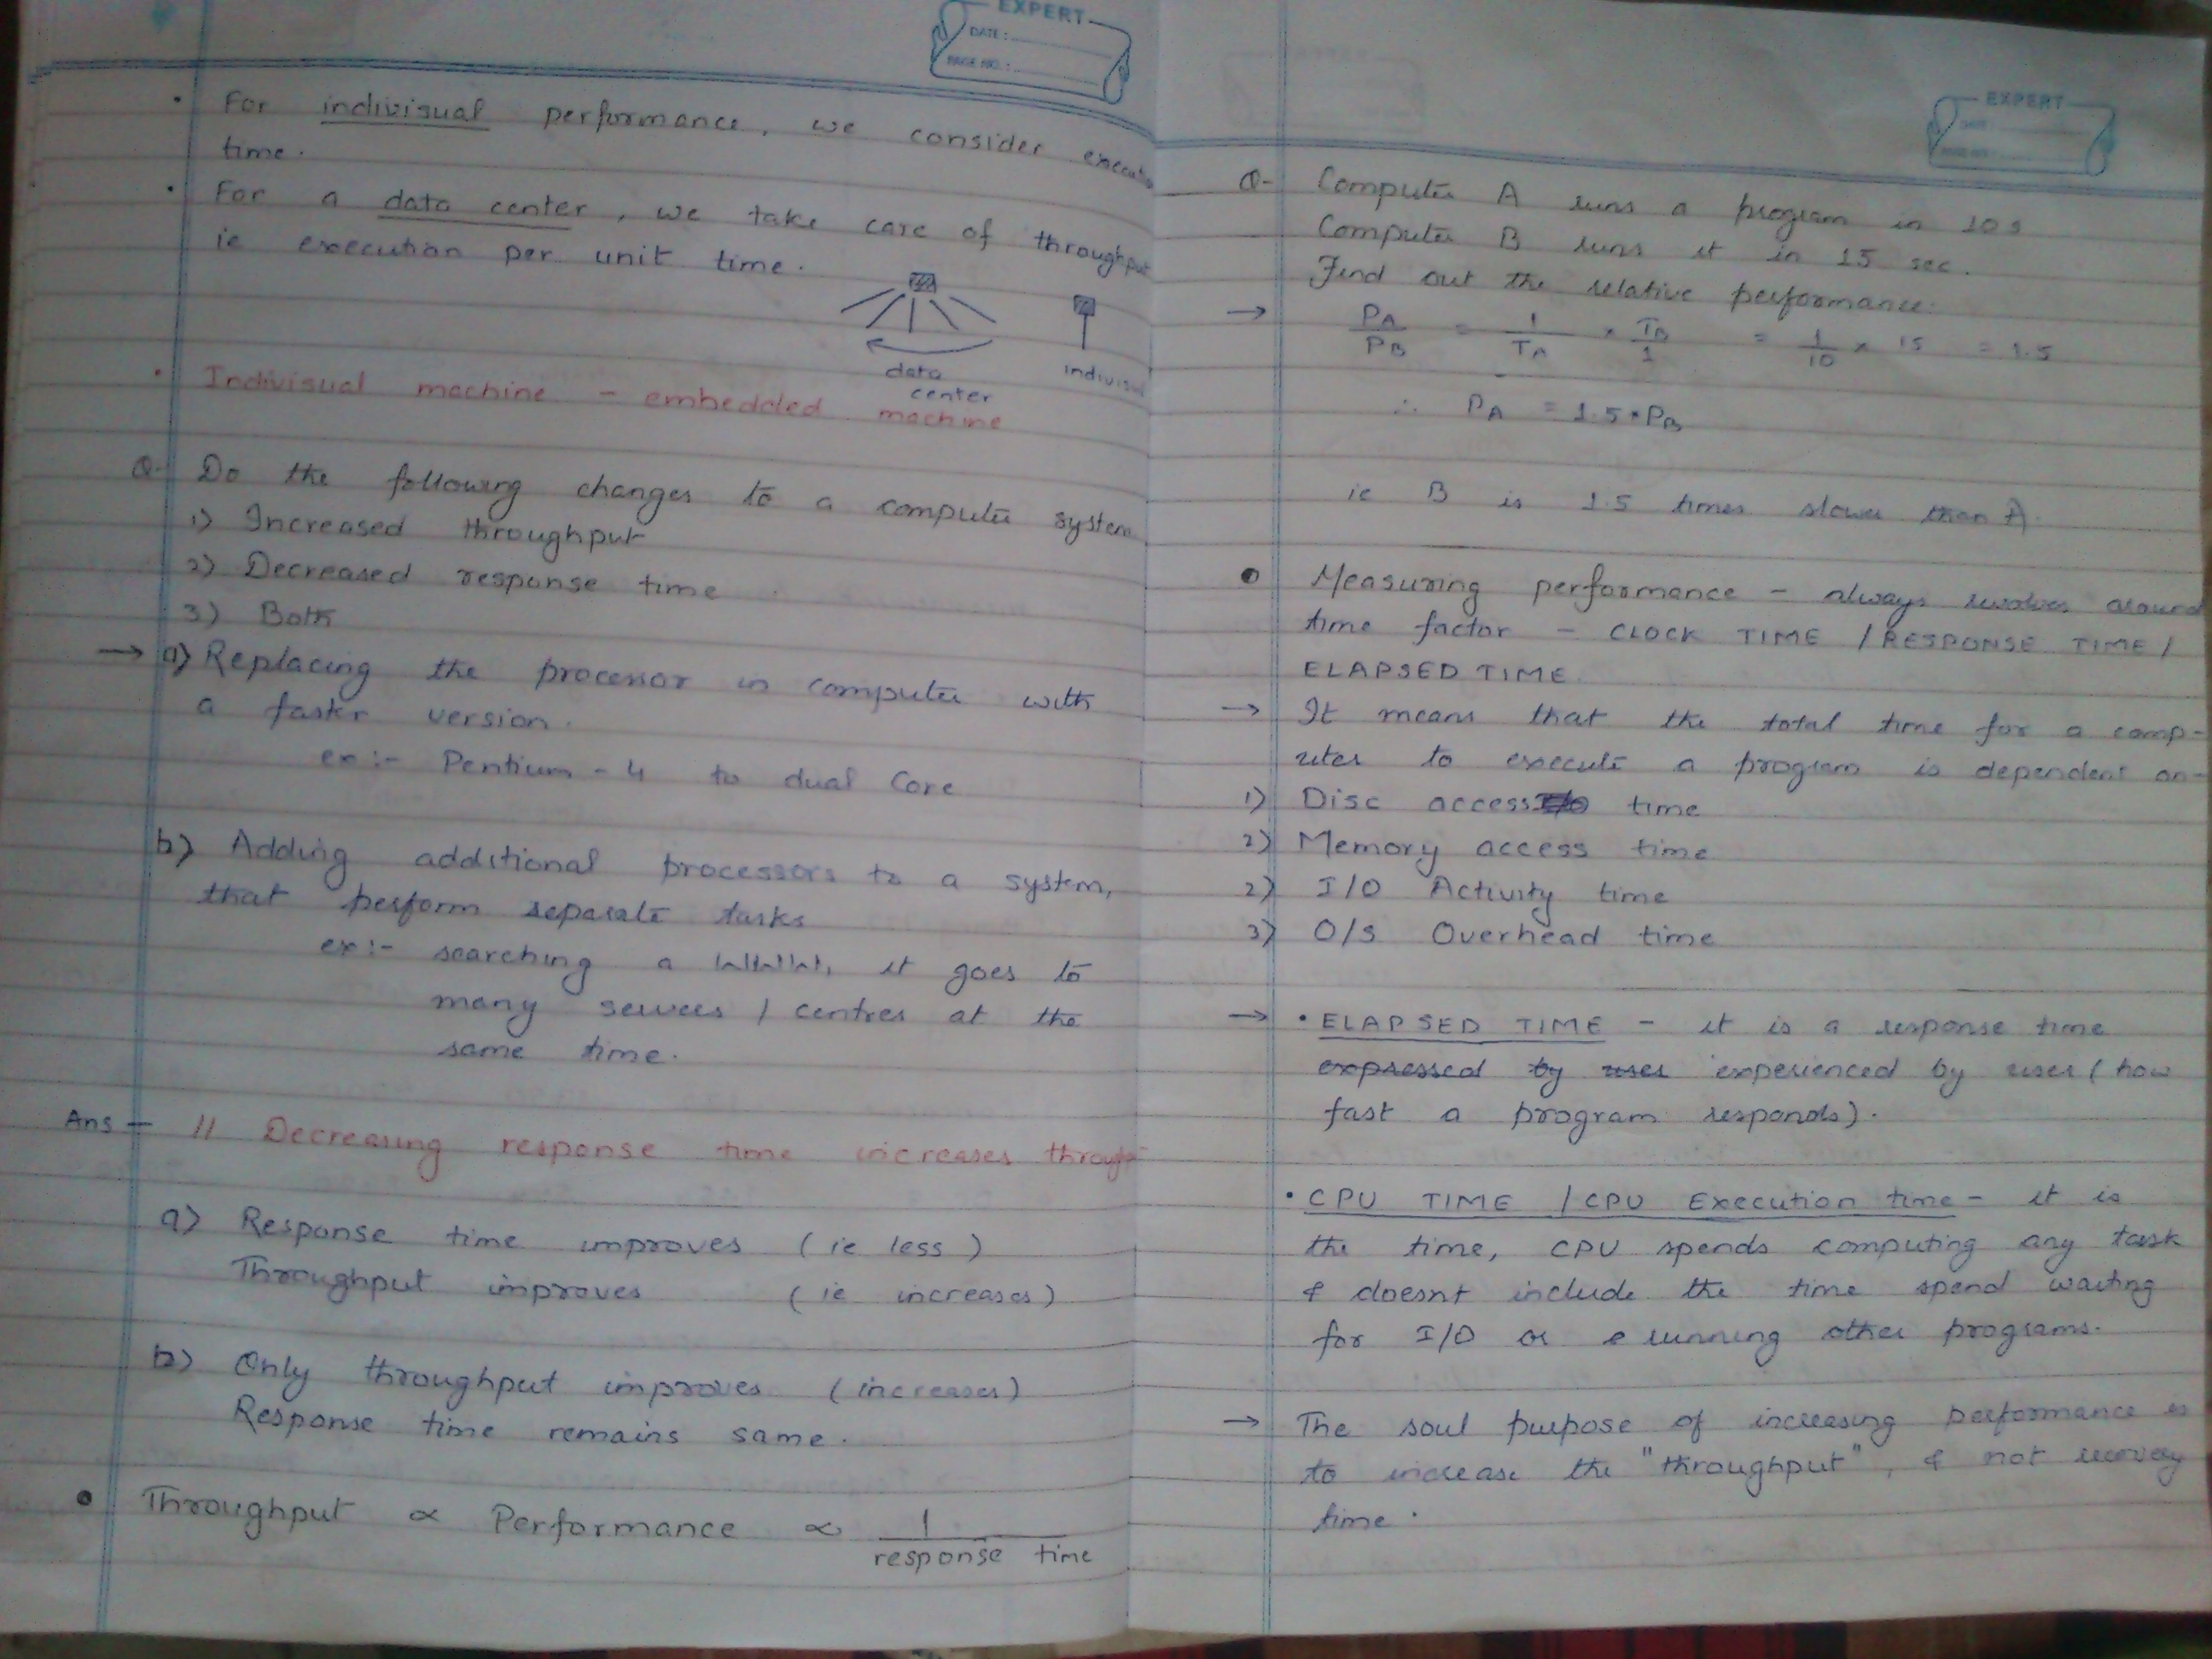 EXPERT
DATE :
PAGE NO. :
• For indivisual performance, we consider
time.
• For a data center, we take care of throughput
ie execution per unit time.
data
center
• Indivisual machine - embedded machine
Q- Do the following changes to a computer system
1) Increased throughput
2) Decreased response time
3) Both
→ a) Replacing the processor in computer with
a faster version.
ex :- Pentium - 4 to dual Core
b) Adding additional processors to a system,
that perform separate tasks
ex :- searching a it goes to
many servers / centres at the
same time.
Ans - // Decreasing response time increases
a) Response time improves (ie less)
Throughput improves (ie increases)
b) Only throughput improves (increases)
Response time remains same.
• Throughput ∝ Performance ∝ 1
response time
EXPERT
DATE
PAGE NO.
Q- Computer A runs a program in 10 s
Computer B runs it in 15 sec.
Find out the relative performance.
→ PA/PB = 1/TA × TB/1 = 1/10 × 15 = 1.5
∴ PA = 1.5 * PB
ie B is 1.5 times slower than A.
• Measuring performance - always revolves around
time factor - CLOCK TIME / RESPONSE TIME /
ELAPSED TIME.
→ It means that the total time for a comp-
uter to execute a program is dependent on-
1) Disc access time
2) Memory access time
2) I/O Activity time
3) O/S Overhead time
→ • ELAPSED TIME - it is a response time
expressed by user experienced by user (how
fast a program responds).
• CPU TIME / CPU Execution time - it is
the time, CPU spends computing any task
& doesnt include the time spend waiting
for I/O or running other programs.
→ The soul purpose of increasing performance is
to increase the "throughput", & not recovery
time.